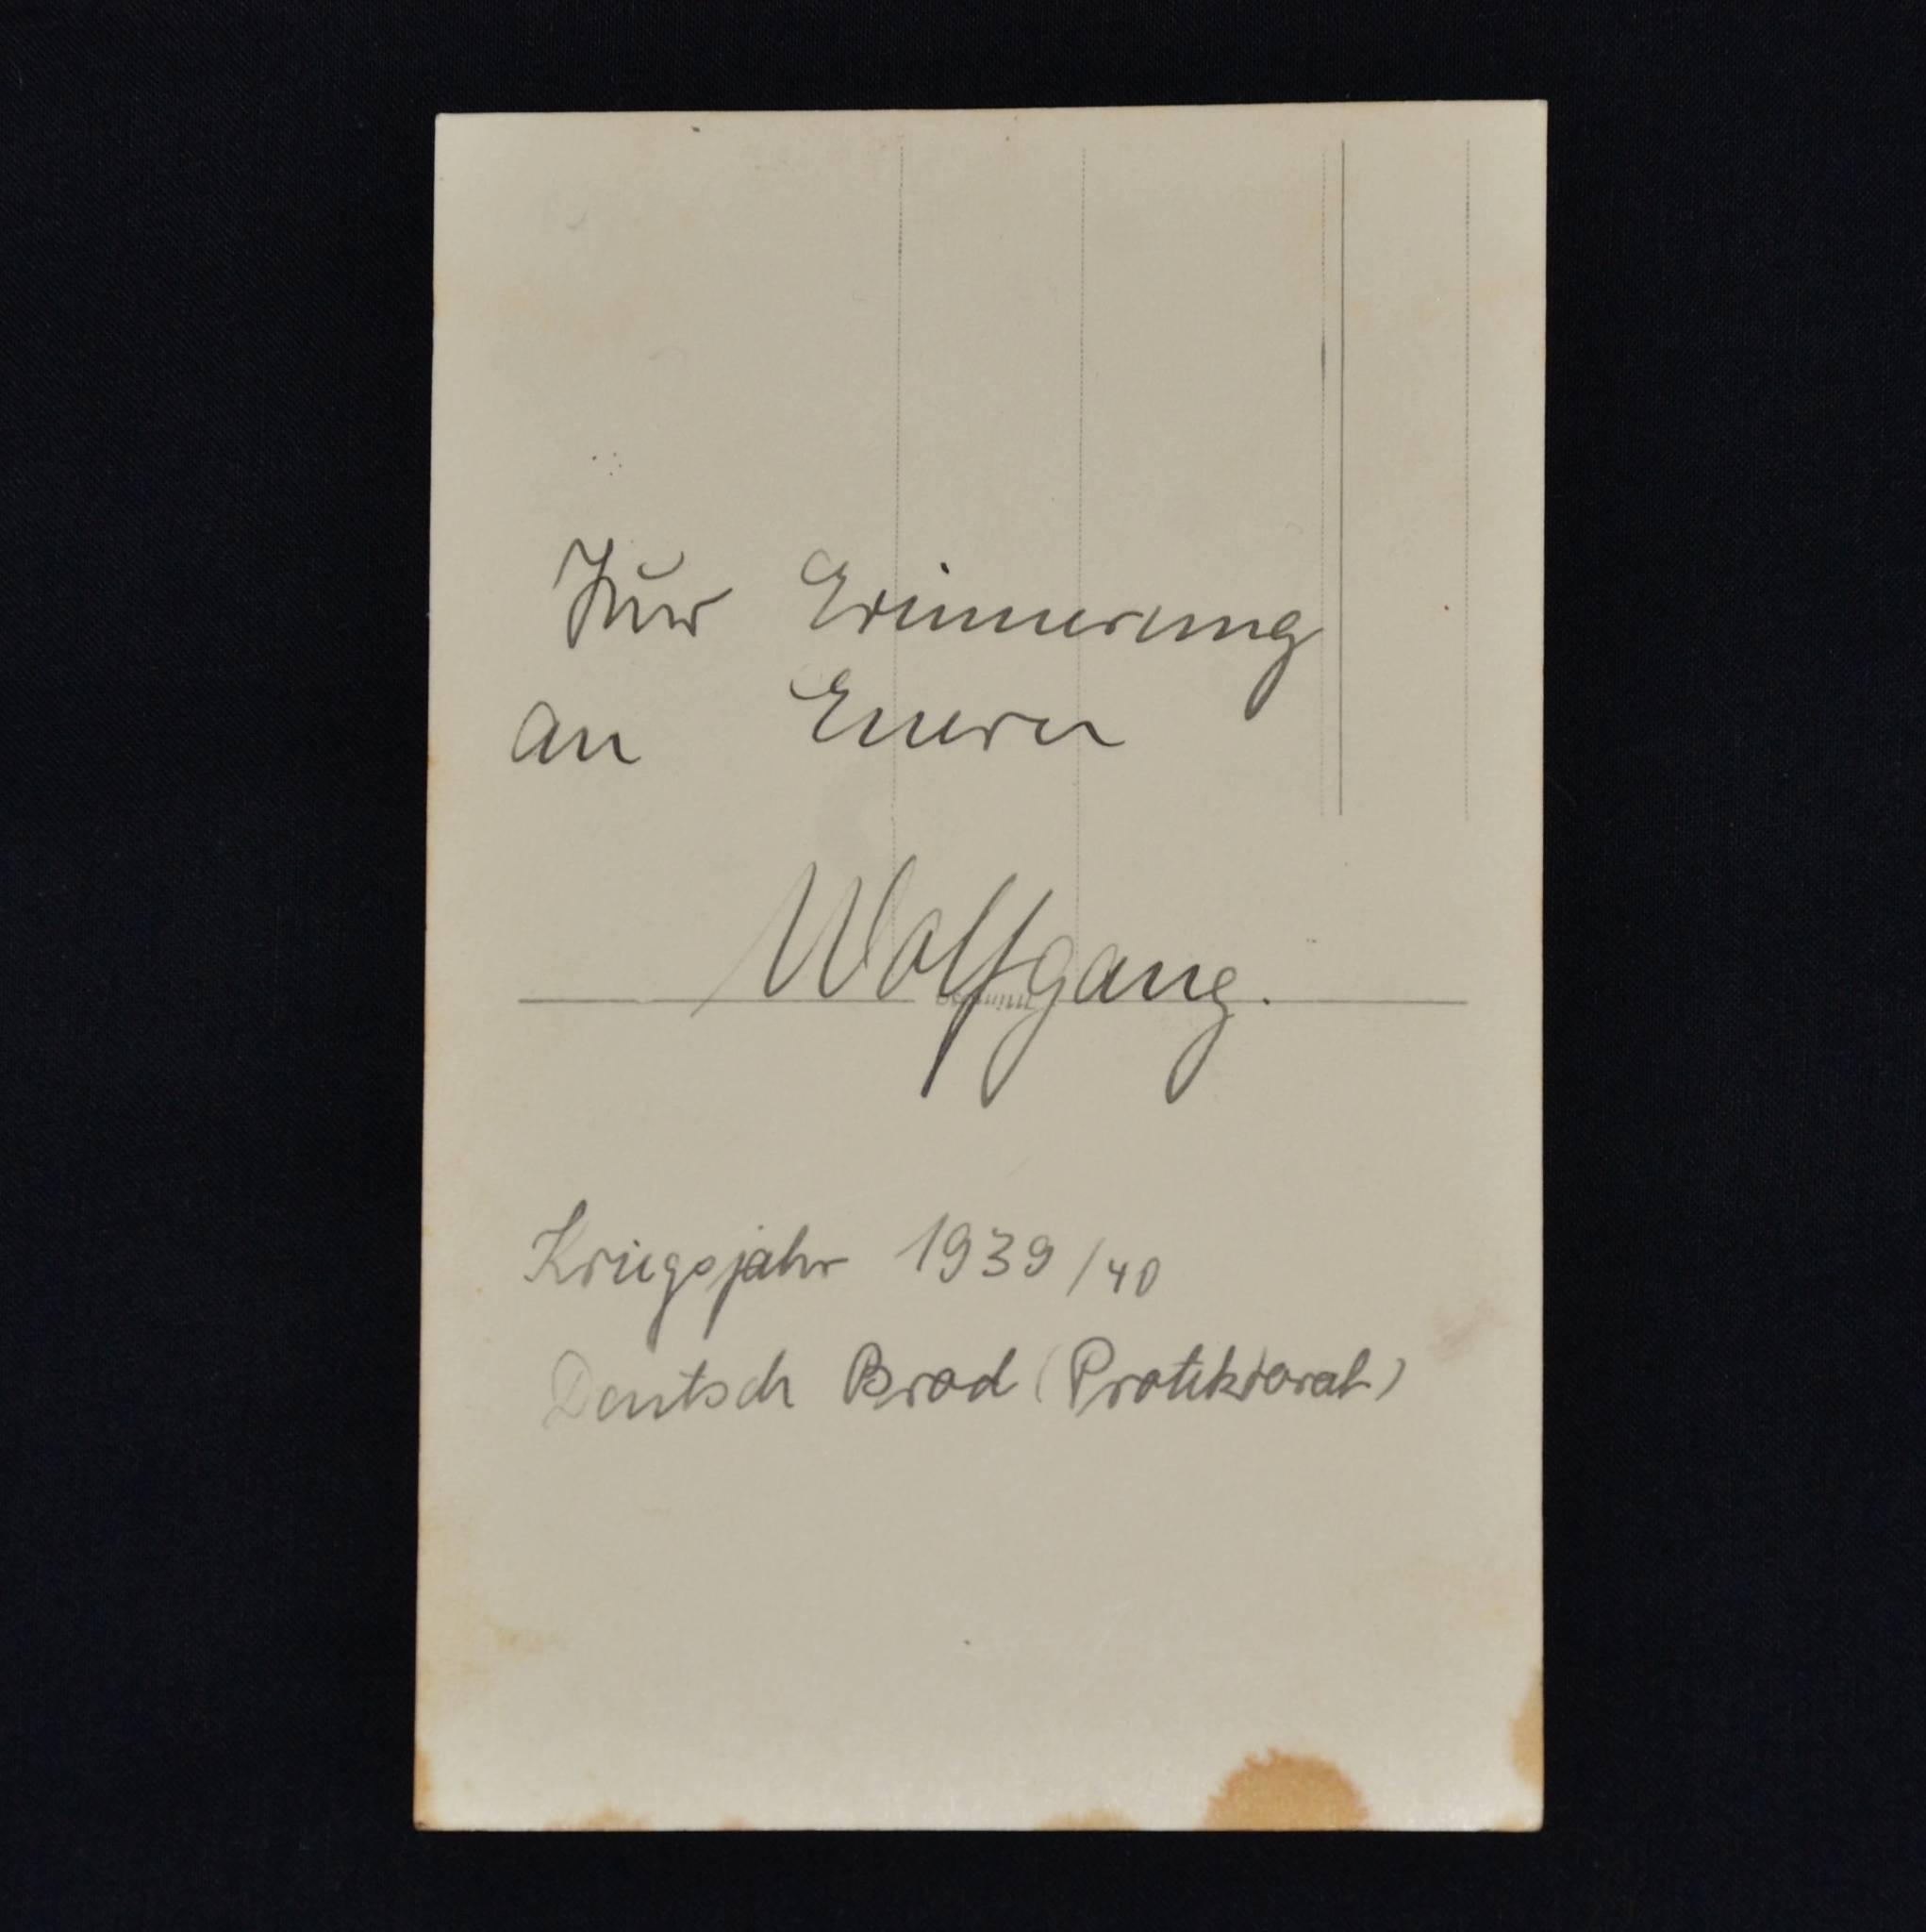 Zur Erinnerung
an Euern
Wolfgang.
Kriegsjahr 1939/40
Deutsch Brod (Protektorat)